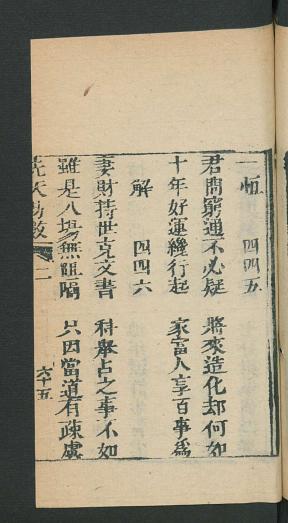 一 恆 四四五
君問窮通不必疑 將來造化却何如
十年好運纔行起 家富人享百事為
解 四四六
妻財持世克文書 科舉占之事不如
雖是入場無阻隔 只因當道有疎虞
先天易数 二 六十五